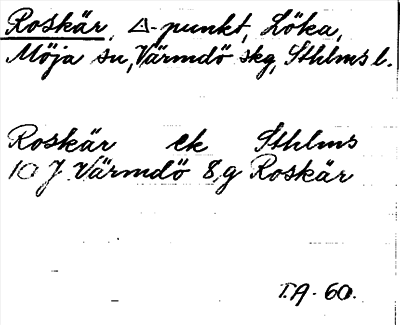 Roskär, Δ-punkt, Löka,
Möja sn, Värmdö skg, Sthlms l.
Roskär ek Sthlms
10 J Värmdö 8g Roskär
T.A. 60.